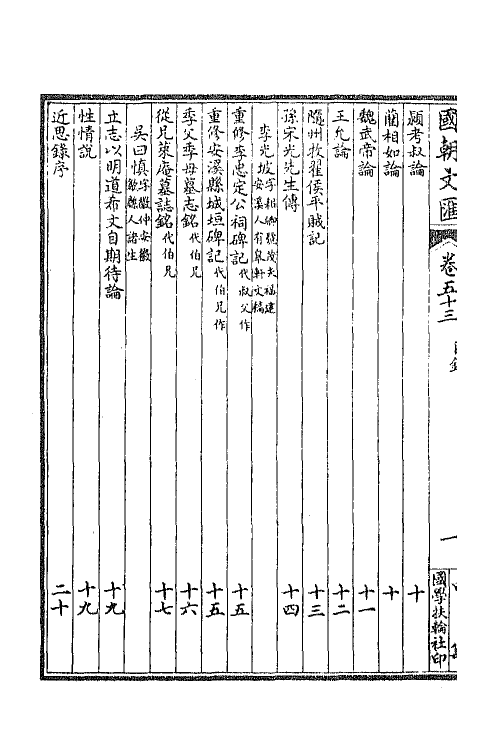 國朝文匯 卷五十三 目錄 一
國學扶輪社印
潁考叔論 十
藺相如論 十
魏武帝論 十一
王允論 十二
隨州牧翟侯平賊記 十三
孫宋光先生傳 十四
李光坡 字耜卿號茂夫福建安溪人有皋軒文稿
重修李忠定公祠碑記 代叔父作 十五
重修安溪縣城垣碑記 代伯兄作 十五
季父季母墓志銘 代伯兄 十六
從兄萊庵墓誌銘 代伯兄 十七
吳曰慎 字徽仲安徽歙縣人諸生
立志以明道希文自期待論 十九
性情說 十九
近思錄序 二十